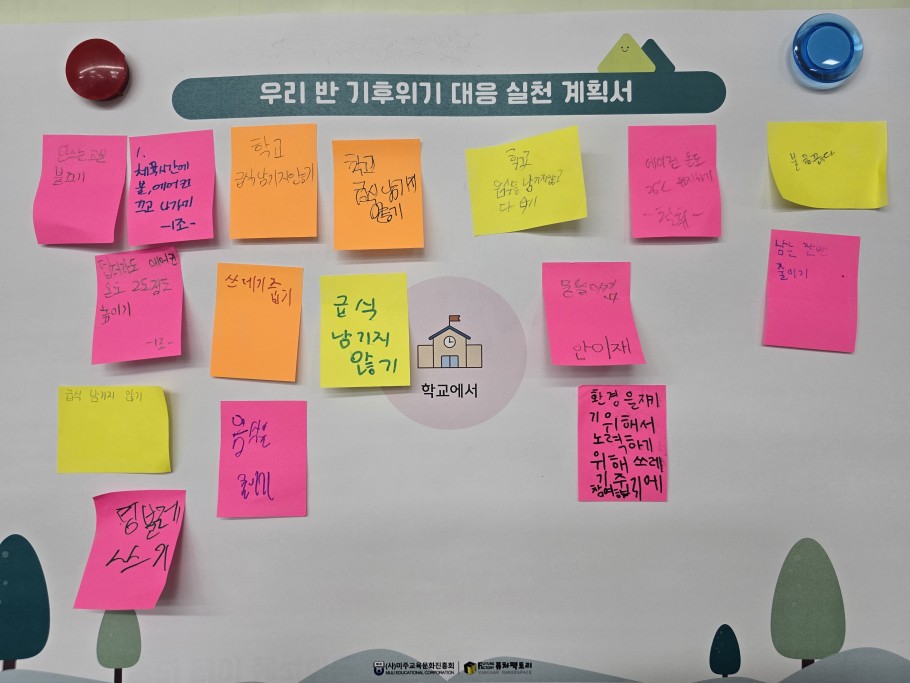 우리 반 기후위기 대응 실천 계획서
불끄기
1.
체육시간에
불, 에어컨
끄고 나가기
-1조-
학교
급식 남기지 않기
학교
급식 남기지
않기
학교
음식을 남기지않고
다 먹기
에어컨 온도
26도 유지하기
불을끈다
에어컨
온도 25정도
높이기
-1조-
쓰레기줍기
급식
남기지
않기
안이재
남은 잔반
줄이기
학교에서
급식 남기지 않기
음식물
줄이기
환경을지키
기위해서
노력하기
위해 쓰레
기줍기에
참여합
텀블러
쓰기
(사)미주교육문화진흥회
MIJU EDUCATIONAL CORPORATION
퓨처팩토리